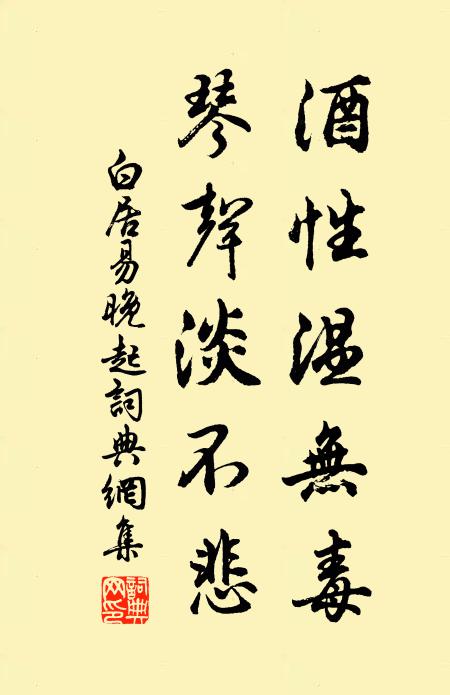 酒性温無毒
琴聲淡不悲
白居易晚起詞典網集
詞典网印